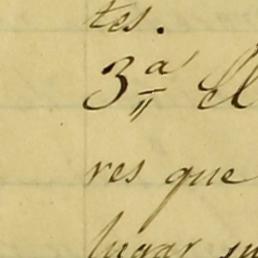 tes.
3ª El
res que
lugar